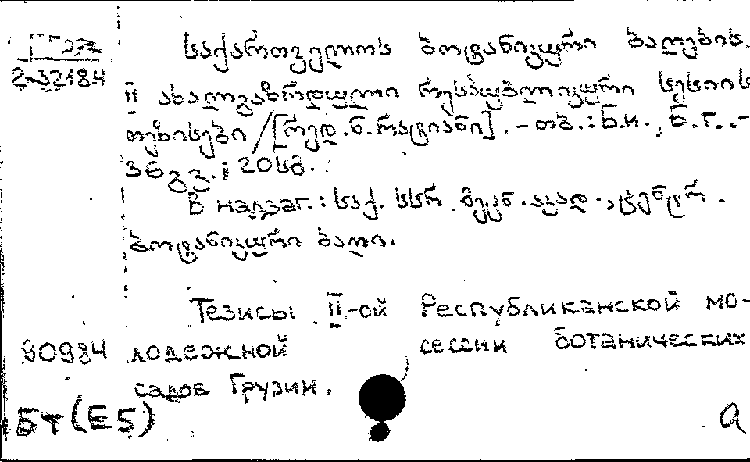 2-32184
საქართველოს ბოტანიკური ბაღების
II ახალგაზრდული რესპუბლიკური სესიის
თეზისები / [რედ. ნ. რატიანი]. - თბ.: Б.и., Б.г. -
36 გვ.; 20 სმ.
В надзаг.: საქ. სსრ მეცნ. აკად. ცენტრ.
ბოტანიკური ბაღი.
Тезисы II-ой Республиканской мо-
80984 лодежной сессии ботанических
садов Грузии.
Бт(Е5) а